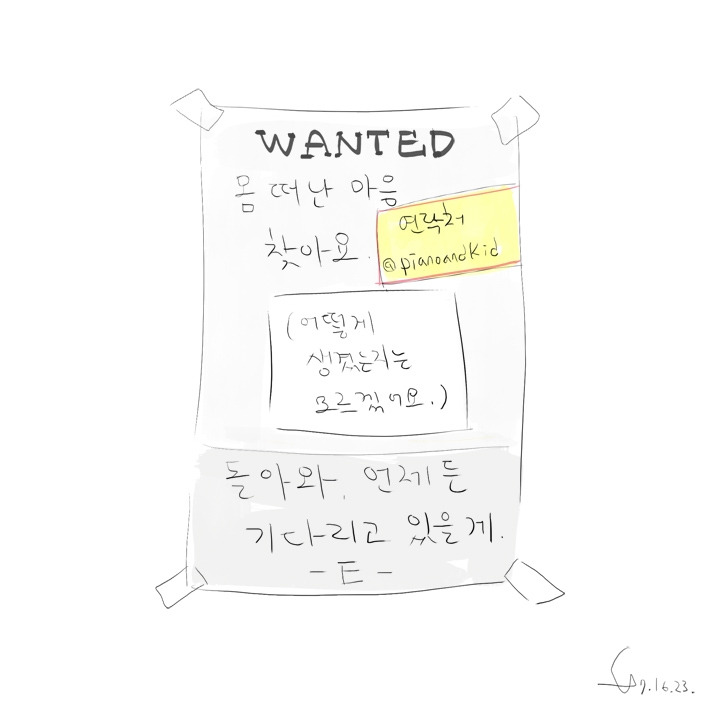 WANTED
몸 떠난 마음
찾아요.
연락처
@pianoandkid
(어떻게
생겼는지는
모르겠어요.)
돌아와, 언제든
기다리고 있을게.
-E-
7.16.23.